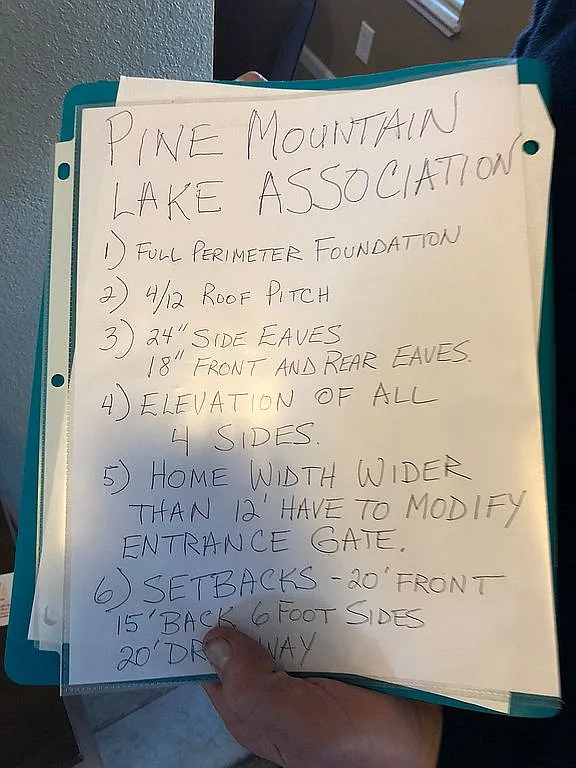 PINE MOUNTAIN
LAKE ASSOCIATION
1) FULL PERIMETER FOUNDATION
2) 4/12 ROOF PITCH
3) 24" SIDE EAVES
18" FRONT AND REAR EAVES.
4) ELEVATION OF ALL
4 SIDES.
5) HOME WIDTH WIDER
THAN 12' HAVE TO MODIFY
ENTRANCE GATE.
6) SETBACKS - 20' FRONT
15' BACK 6 FOOT SIDES
20'